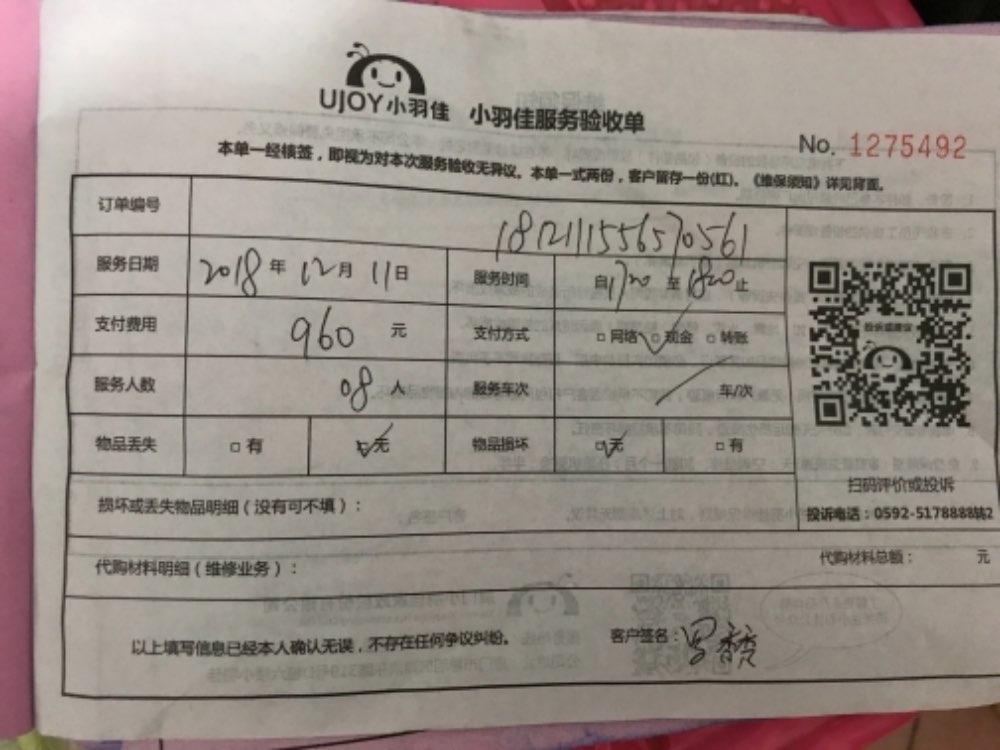 UJOY小羽佳 小羽佳服务验收单
No. 1275492
本单一经核签，即视为对本次服务验收无异议。本单一式两份，客户留存一份(红)。《维保须知》详见背面。
订单编号 18121115565570561
服务日期 2018年12月11日 服务时间 自1720至1820止
支付费用 960 元 支付方式 □网络 ☑现金 □转账
服务人数 08人 服务车次 / 车/次
物品丢失 □有 ☑无 物品损坏 ☑无 □有
投诉或建议
扫码评价或投诉
损坏或丢失物品明细（没有可不填）：
投诉电话：0592-5178888转2
代购材料明细（维修业务）：
代购材料总额： 元
以上填写信息已经本人确认无误，不存在任何争议纠纷。 客户签名：